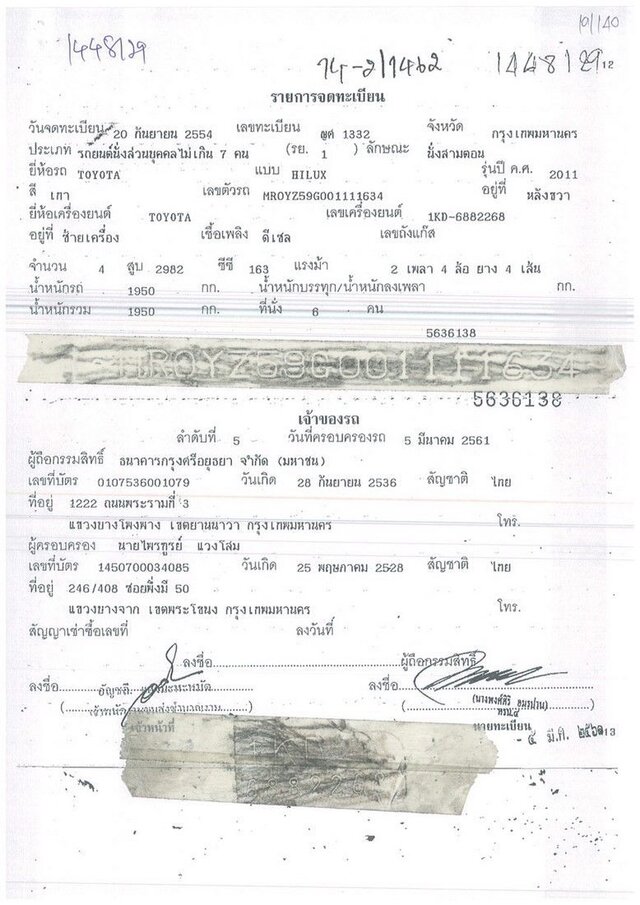 10/140
1448/29
74-2/1462
1448/29 12
รายการจดทะเบียน
วันจดทะเบียน 20 กันยายน 2554 เลขทะเบียน 1332 จังหวัด กรุงเทพมหานคร
ประเภท รถยนต์นั่งส่วนบุคคลไม่เกิน 7 คน (รย. 1 ) ลักษณะ นั่งสามตอน
ยี่ห้อรถ TOYOTA แบบ HILUX รุ่นปี ค.ศ. 2011
สี เทา เลขตัวรถ MROYZ59G001111634 อยู่ที่ หลังขวา
ยี่ห้อเครื่องยนต์ TOYOTA เลขเครื่องยนต์ 1KD-6882268
อยู่ที่ ซ้ายเครื่อง เชื้อเพลิง ดีเซล เลขถังแก๊ส
จำนวน 4 สูบ 2982 ซีซี 163 แรงม้า 2 เพลา 4 ล้อ ยาง 4 เส้น
น้ำหนักรถ 1950 กก. น้ำหนักบรรทุก/น้ำหนักลงเพลา กก.
น้ำหนักรวม 1950 กก. ที่นั่ง 6 คน
5636138
MROYZ59G001111634
5636138
เจ้าของรถ
ลำดับที่ 5 วันที่ครอบครองรถ 5 มีนาคม 2561
ผู้ถือกรรมสิทธิ์ ธนาคารกรุงศรีอยุธยา จำกัด (มหาชน)
เลขที่บัตร 0107536001079 วันเกิด 28 กันยายน 2536 สัญชาติ ไทย
ที่อยู่ 1222 ถนนพระรามที่ 3
แขวงบางโพงพาง เขตยานนาวา กรุงเทพมหานคร โทร.
ผู้ครอบครอง นายไพรฑูรย์ แวงโสม
เลขที่บัตร 1450700034085 วันเกิด 25 พฤษภาคม 2528 สัญชาติ ไทย
ที่อยู่ 246/408 ซอยพึ่งมี 50
แขวงบางจาก เขตพระโขนง กรุงเทพมหานคร โทร.
สัญญาเช่าซื้อเลขที่ ลงวันที่
ลงชื่อ ผู้ถือกรรมสิทธิ์
ลงชื่อ ลงชื่อ
เจ้าหน้าที่ นายทะเบียน ๕ มี.ค. ๒๕๖๑ 13